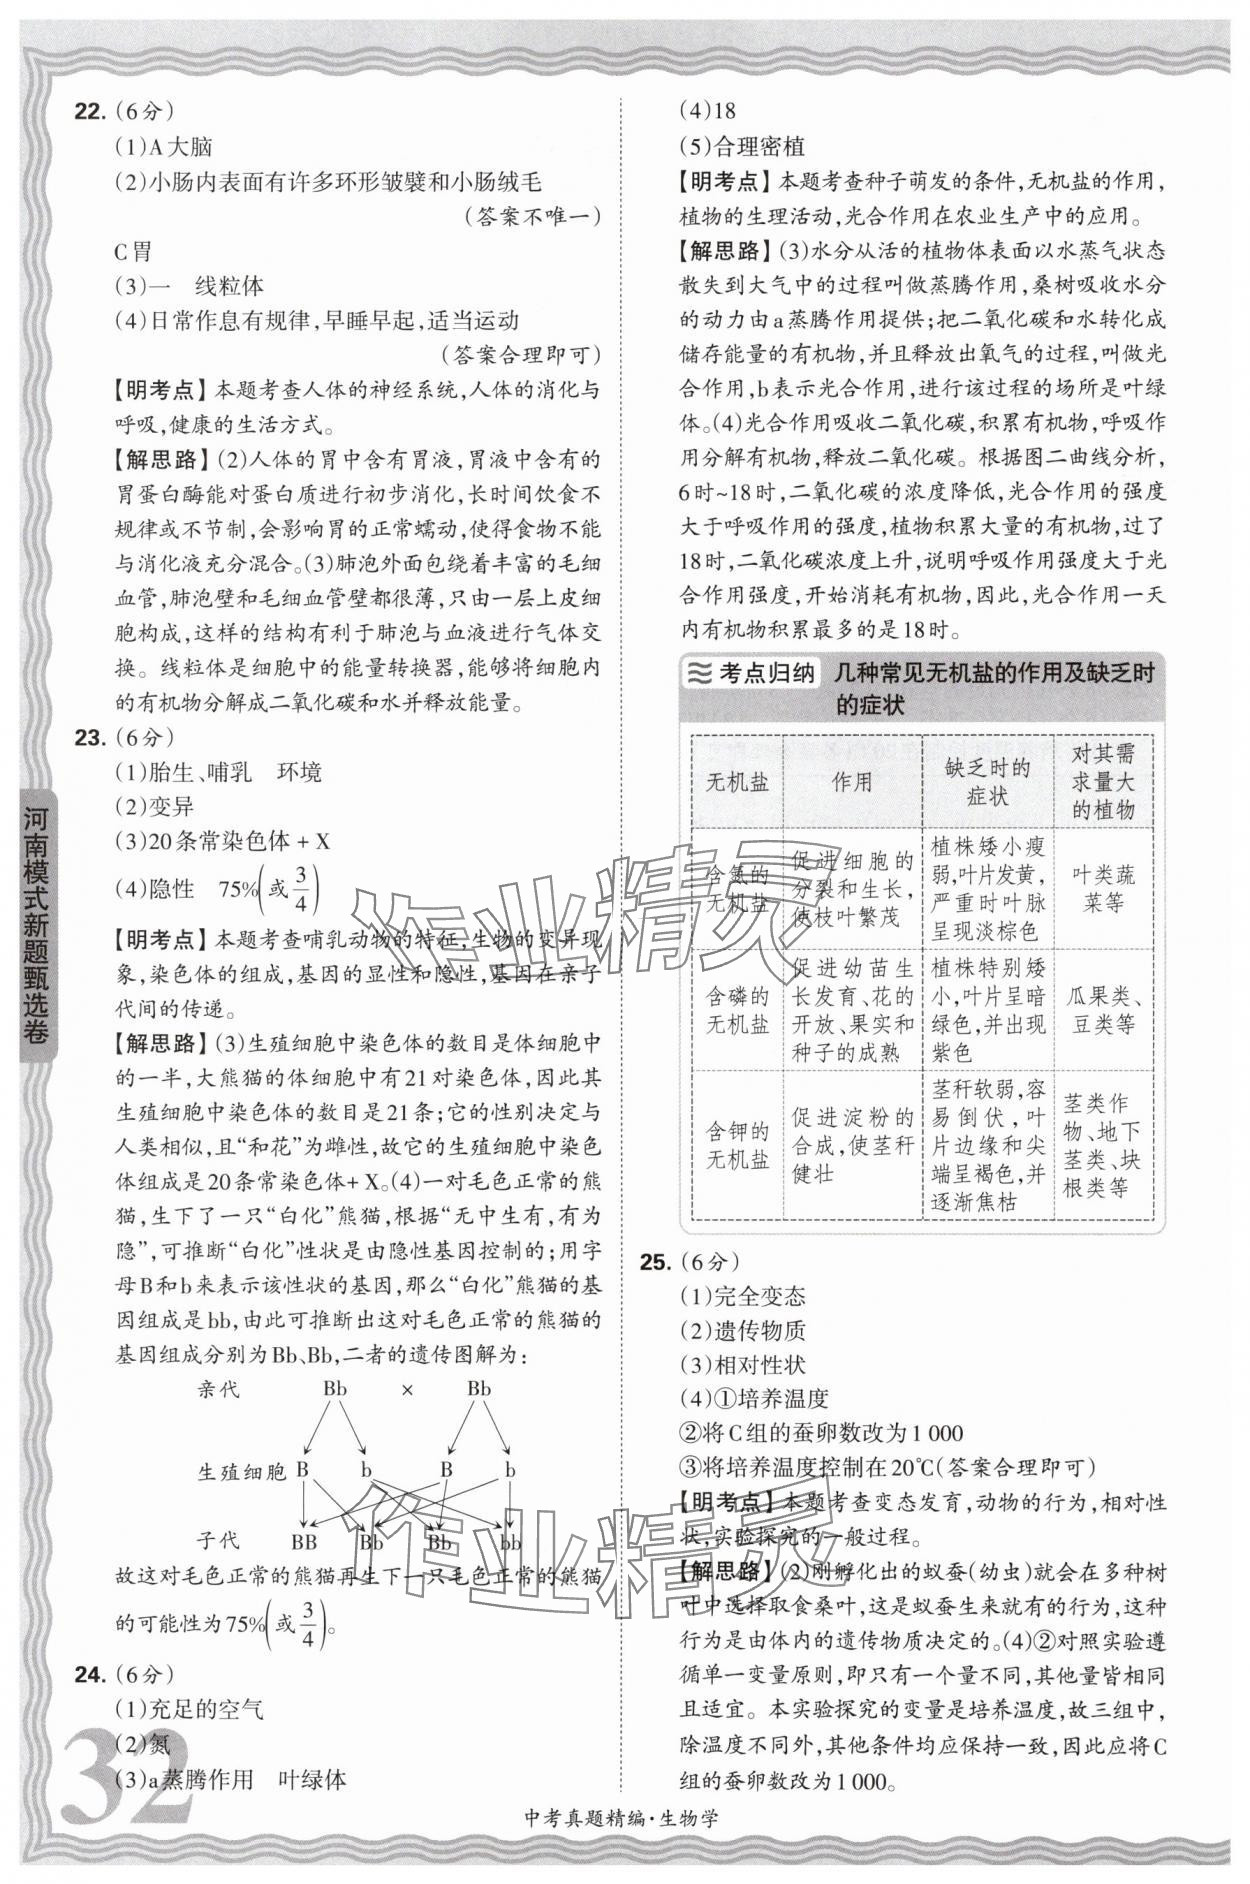 22. (6分)
(1)A大脑
(2)小肠内表面有许多环形皱襞和小肠绒毛
(答案不唯一)
C胃
(3)一 线粒体
(4)日常作息有规律,早睡早起,适当运动
(答案合理即可)
【明考点】本题考查人体的神经系统,人体的消化与
呼吸,健康的生活方式。
【解思路】(2)人体的胃中含有胃液,胃液中含有的
胃蛋白酶能对蛋白质进行初步消化,长时间饮食不
规律或不节制,会影响胃的正常蠕动,使得食物不能
与消化液充分混合。(3)肺泡外面包绕着丰富的毛细
血管,肺泡壁和毛细血管壁都很薄,只由一层上皮细
胞构成,这样的结构有利于肺泡与血液进行气体交
换。线粒体是细胞中的能量转换器,能够将细胞内
的有机物分解成二氧化碳和水并释放能量。
23. (6分)
(1)胎生、哺乳 环境
(2)变异
(3)20条常染色体+X
(4)隐性 75%(或3/4)
【明考点】本题考查哺乳动物的特征,生物的变异现
象,染色体的组成,基因的显性和隐性,基因在亲子
代间的传递。
【解思路】(3)生殖细胞中染色体的数目是体细胞中
的一半,大熊猫的体细胞中有21对染色体,因此其
生殖细胞中染色体的数目是21条;它的性别决定与
人类相似,且“和花”为雌性,故它的生殖细胞中染色
体组成是20条常染色体+X。(4)一对毛色正常的熊
猫,生下了一只“白化”熊猫,根据“无中生有,有为
隐”,可推断“白化”性状是由隐性基因控制的;用字
母B和b来表示该性状的基因,那么“白化”熊猫的基
因组成是bb,由此可推断出这对毛色正常的熊猫的
基因组成分别为Bb、Bb,二者的遗传图解为:
亲代 Bb × Bb
生殖细胞 B b B b
子代 BB Bb Bb bb
故这对毛色正常的熊猫再生下一只毛色正常的熊猫
的可能性为75%(或3/4)。
24. (6分)
(1)充足的空气
(2)氮
(3)a蒸腾作用 叶绿体
(4)18
(5)合理密植
【明考点】本题考查种子萌发的条件,无机盐的作用,
植物的生理活动,光合作用在农业生产中的应用。
【解思路】(3)水分从活的植物体表面以水蒸气状态
散失到大气中的过程叫做蒸腾作用,桑树吸收水分
的动力由a蒸腾作用提供;把二氧化碳和水转化成
储存能量的有机物,并且释放出氧气的过程,叫做光
合作用,b表示光合作用,进行该过程的场所是叶绿
体。(4)光合作用吸收二氧化碳,积累有机物,呼吸作
用分解有机物,释放二氧化碳。根据图二曲线分析,
6时~18时,二氧化碳的浓度降低,光合作用的强度
大于呼吸作用的强度,植物积累大量的有机物,过了
18时,二氧化碳浓度上升,说明呼吸作用强度大于光
合作用强度,开始消耗有机物,因此,光合作用一天
内有机物积累最多的是18时。
考点归纳 几种常见无机盐的作用及缺乏时
的症状
无机盐 作用 缺乏时的症状 对其需求量大的植物
含氮的无机盐 促进细胞的分裂和生长,使枝叶繁茂 植株矮小瘦弱,叶片发黄,严重时叶脉呈现淡棕色 叶类蔬菜等
含磷的无机盐 促进幼苗生长发育、花的开放、果实和种子的成熟 植株特别矮小,叶片呈暗绿色,并出现紫色 瓜果类、豆类等
含钾的无机盐 促进淀粉的合成,使茎秆健壮 茎秆软弱,容易倒伏,叶片边缘和尖端呈褐色,并逐渐焦枯 茎类作物、地下茎类、块根类等
25. (6分)
(1)完全变态
(2)遗传物质
(3)相对性状
(4)①培养温度
②将C组的蚕卵数改为1 000
③将培养温度控制在20℃(答案合理即可)
【明考点】本题考查变态发育,动物的行为,相对性
状,实验探究的一般过程。
【解思路】(2)刚孵化出的蚁蚕(幼虫)就会在多种树
叶中选择取食桑叶,这是蚁蚕生来就有的行为,这种
行为是由体内的遗传物质决定的。(4)②对照实验遵
循单一变量原则,即只有一个量不同,其他量皆相同
且适宜。本实验探究的变量是培养温度,故三组中,
除温度不同外,其他条件均应保持一致,因此应将C
组的蚕卵数改为1 000。
河南模式新题甄选卷
32
中考真题精编·生物学
作业精灵
作业精灵